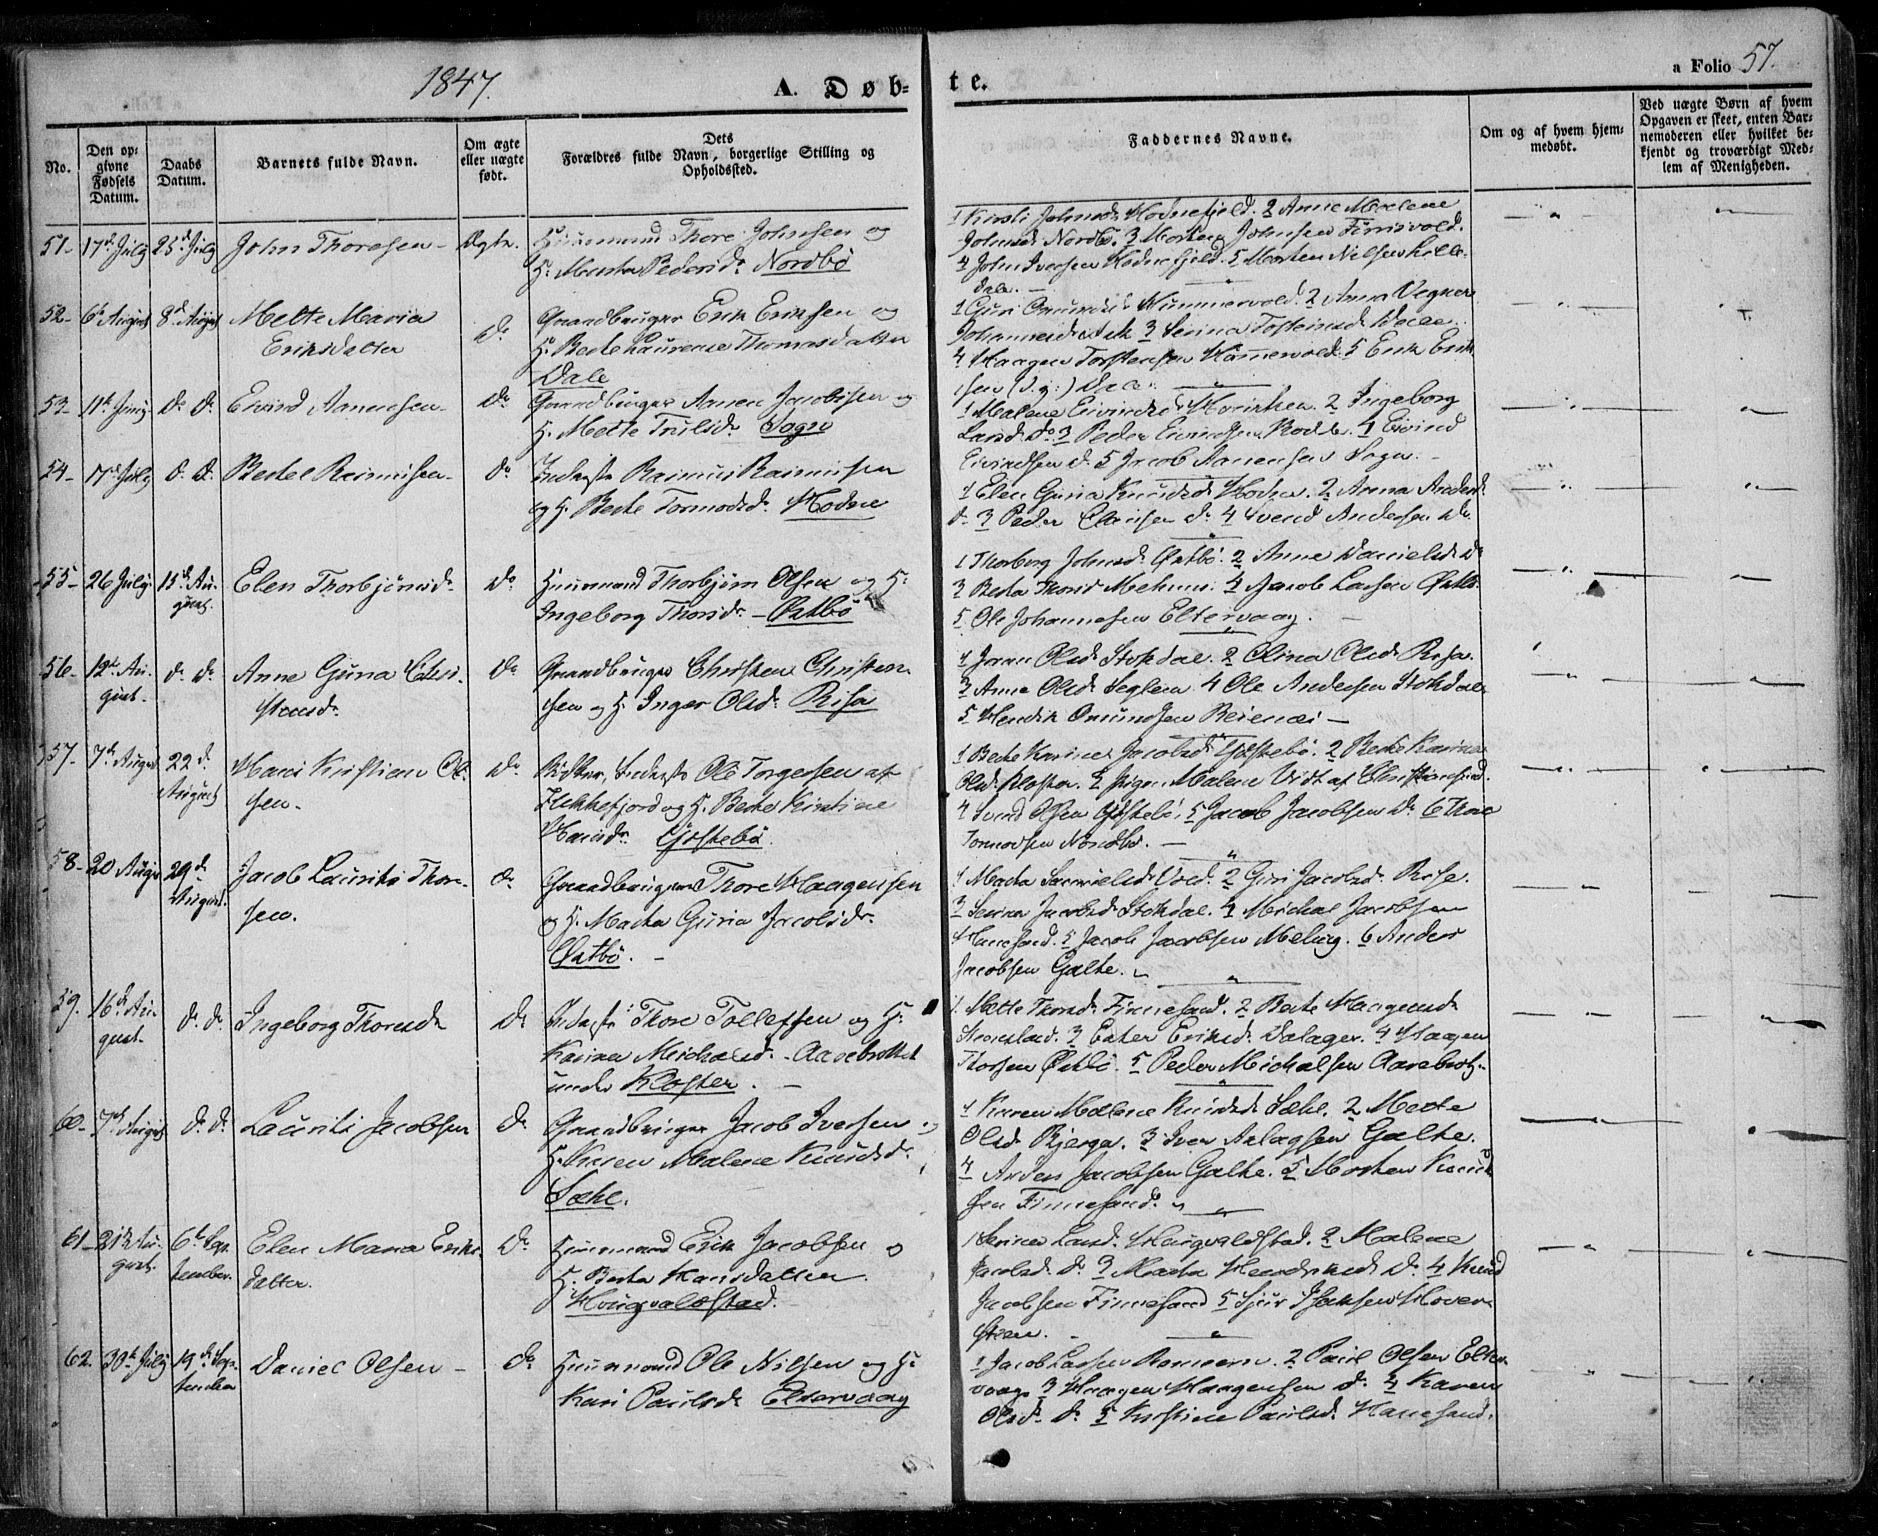 1847.
A. Døb-
te.
a Folio 57.
No.
Den op-
givne
Fødsels
Datum.
Daabs
Datum.
Barnets fulde Navn.
Om ægte
eller uægte
født.
Dets
Forældres fulde Navn, borgerlige Stilling og
Opholdssted.
Faddernes Navne.
Om og af hvem hjem-
medøbt.
Ved uægte Børn af hvem
Opgaven er skeet, enten Bar-
nemoderen eller hvilket be-
kjendt og troværdigt Med-
lem af Menigheden.
51- 17d July 25d July John Thoresen- Ægte. Huusmand Thore Johnsen og
H. Marta Pedersdr Nordbø
1 Kirsti Johnsdr Hodnefjeld. 2 Anne Malene
Johnsdr Nordbø. 3 Morten Johnsen Finsvold.
4 John Iversen Hodnefjeld. 5 Morten Nilsen Lille-
dale.
52- 6d August 8d August Mette Maria
Eriksdatter
Do Gaardbruger Erik Eriksen og
H. Berte Laurense Thomasdatter
Dale
1 Guri Omundsdr Nummervold. 2 Anna
Johannesdr Ask 3 Serina Tosteinsdr Dale.
4 Haagen Torstensen 5 Erik Erik-
sen
53- 11d Juny Do Do Eivind Aanensen- Do Gaardbruger Aanen Jacobsen og
H. Mette Trulsdr Sogn
1 Malene Eivindsdr 2 Ingeborg
Larsdr Do 3 Peder Eivindsen 4 Eivind
Eivindsen Do 5 Jacob Aanensen Sogn.
54- 17d July Do Do Bertel Rasmusen- Do Inderste Rasmus Rasmusen
og H. Berte Tormodsdr. Hodne
1 Elen Guria Knudsdr Hodne. 2 Anna Andersdr
Do 3 Peder Do 4 Svend Andersen Do
55- 26 July 15d Au-
gust.
Elen Thorbjørnsdr Do Huusmand Thorbjørn Olsen og H:
Ingeborg Thorsdr. - Østbø
1 Thorborg Johnsdr Østbø. 2 Anne Danielsdr Do
3 Berta Thorsdr 4 Jacob Larsen Østbø
5 Ole Johannesen Eltervaag.
56- 12d Au-
gust.
Do Do Anne Guria Chri-
stensdr
Do Gaardbruger Christen Christen-
sen og H. Inger Olsdr. Risa
1 Olsdr Stokdal. 2 Olina Olsdr Risa.
3 Anne Olsdr Seglem 4 Ole Andersen Stokdal
5 Henrik Omundsen
57- 7d August 22d
August
Hans Kristian Ol-
sen.
Do Inderste Ole Torgersen af
Flekkefjord og H. Berte Kirstine
Hansdr.
1 Berte Karine Jacobsdr 2 Berte Karine
Olsdr Kloster. 3 pigen Malene af Christiansand.
4 Svend Olsen 5 Jacob Jacobsen Do 6 Thore
Tormodsen Nordbø.
58- 20 August 29d
August.
Jacob Laurits Thore-
sen.
Do Gaardbruger Thore Haagensen
og H. Marta Guria Jacobsdr.
Østbø.
1 Marta Samuelsdr Vold. 2 Guri Jacobsdr Risa.
3 Serina Jacobsdr Stokdal. 4 Michal Jacobsen
Hanesand. 5 Jacob Jacobsen Meling. 6 Anders
Jacobsen Galte.
59. 16d Au-
gust.
Do Do Ingeborg Thoresdr Do Inderste Thore Tollefsen og H:
Karina Michalsdr. Aarebrottet
under Kloster.
1. Mette Thorsdr Finnesand. 2 Berte Haagensdr
3 Ester Eriksdr Dalager. 4 Haagen
Thorsen Østbø. 5 Peder Michalsen Aarebrot.
60- 7d August Do Do Laurits Jacobsen Do Gaardbruger Jacob Iversen og
H. Karen Malene Knudsdr.
Sæhl.
1 Karen Malene Knudsdr Sæhl. 2 Mette
Olsdr Bjerga. 3 Iver Aslagsen Galte.
4 Anders Jacobsen Galte. 5 Morten Knud-
sen Finnesand.
61- 21d Au-
gust.
6d Sep-
tember.
Elen Maria Eriks-
datter.
Do Huusmand Erik Jacobsen og
H. Berta Hansdatter
Hougvaldstad.
1 Serina Larsdr. Hougvaldstad. 2 Malene
Jacobsdr Do 3 Marta Henriksdr Do 4 Knud
Jacobsen Finnesand 5 Sjur
62. 30d July 19d Sep-
tember
Daniel Olsen - Do Huusmand Ole Nilsen og H:
Kari Paulsdr Eltervaag
1 Jacob Larsen 2 Paul Olsen Elter-
vaag 3 Haagen Haagensen Do 4 Karen
Olsdr Do 5 Kirstine Paulsdr Hanesand.